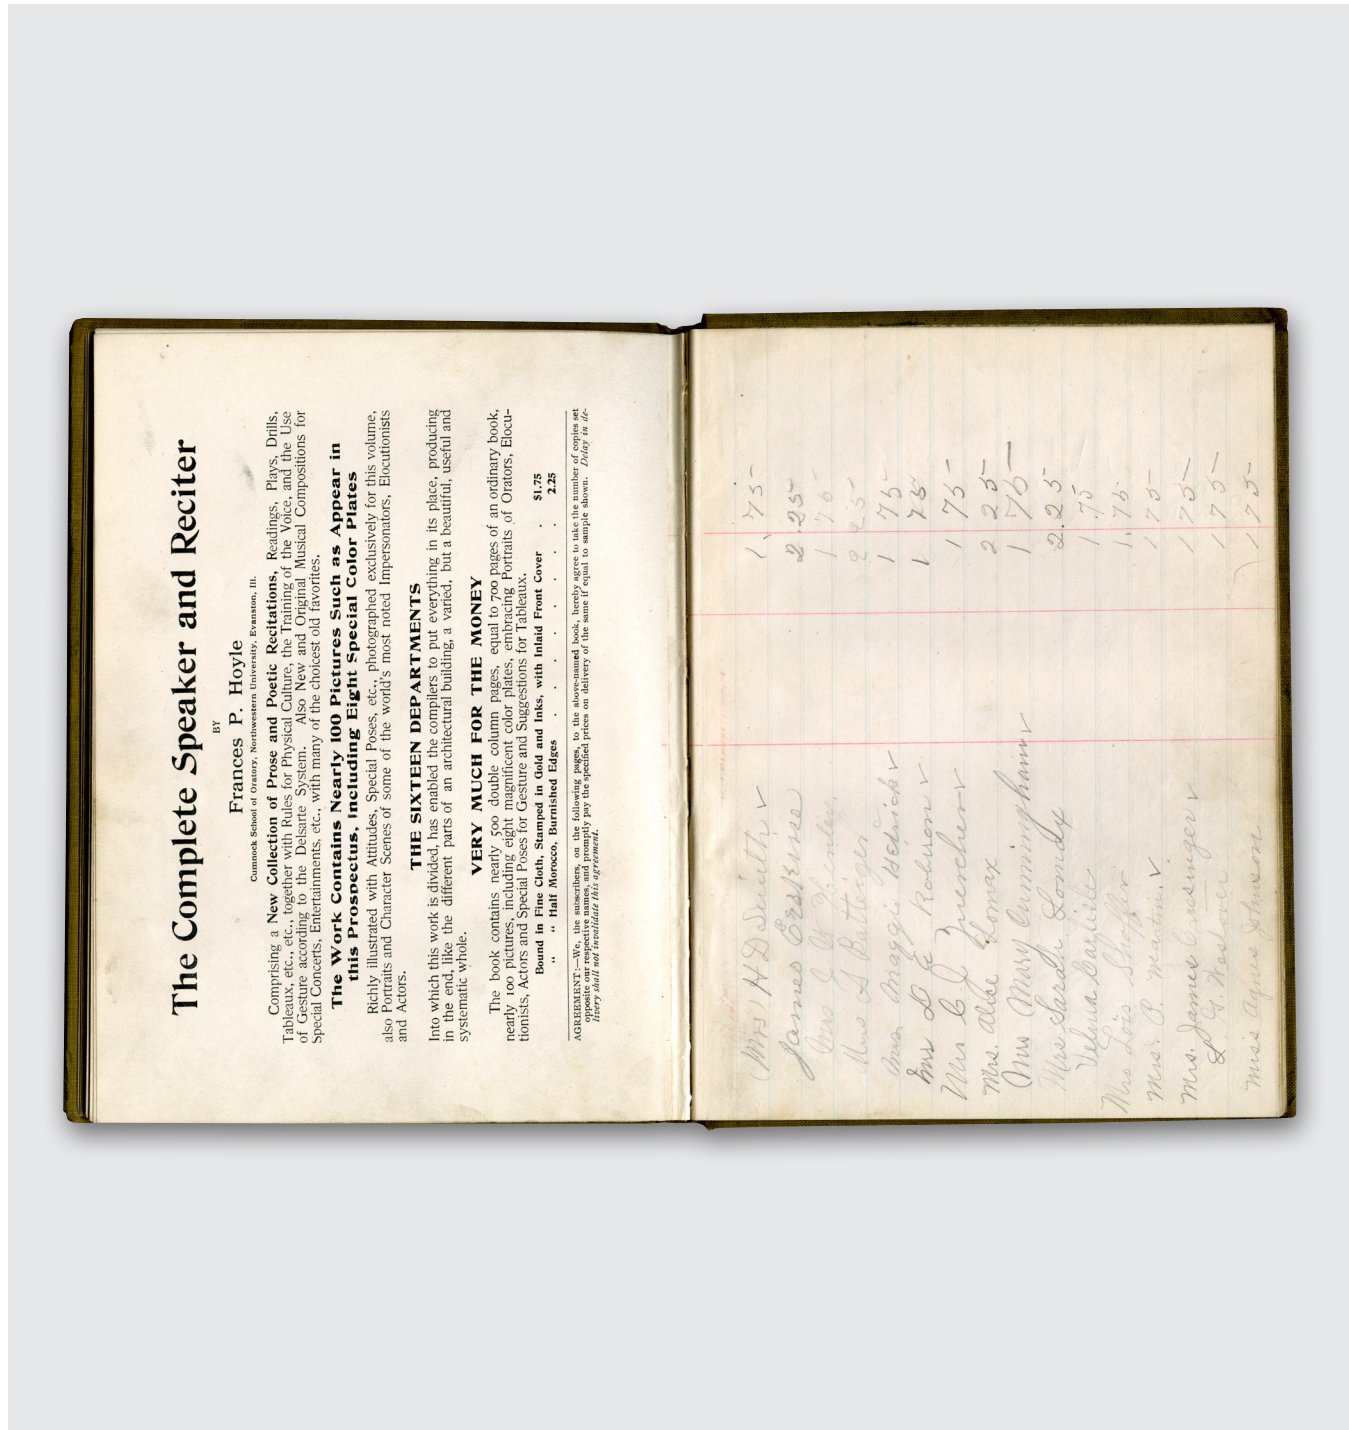 The Complete Speaker and Reciter
BY
Frances P. Hoyle
Cumnock School of Oratory, Northwestern University, Evanston, Ill.
Comprising a New Collection of Prose and Poetic Recitations, Readings, Plays, Drills,
Tableaux, etc., etc., together with Rules for Physical Culture, the Training of the Voice, and the Use
of Gesture according to the Delsarte System. Also New and Original Musical Compositions for
Special Concerts, Entertainments, etc., with many of the choicest old favorites.
The Work Contains Nearly 100 Pictures Such as Appear in
this Prospectus, Including Eight Special Color Plates
Richly illustrated with Attitudes, Special Poses, etc., photographed exclusively for this volume,
also Portraits and Character Scenes of some of the world's most noted Impersonators, Elocutionists
and Actors.
THE SIXTEEN DEPARTMENTS
Into which this work is divided, has enabled the compilers to put everything in its place, producing
in the end, like the different parts of an architectural building, a varied, but a beautiful, useful and
systematic whole.
VERY MUCH FOR THE MONEY
The book contains nearly 500 double column pages, equal to 700 pages of an ordinary book,
nearly 100 pictures, including eight magnificent color plates, embracing Portraits of Orators, Elocu-
tionists, Actors and Special Poses for Gesture and Suggestions for Tableaux.
Bound in Fine Cloth, Stamped in Gold and Inks, with Inlaid Front Cover . $1.75
" " Half Morocco, Burnished Edges . . . . . . 2.25
AGREEMENT:—We, the subscribers, on the following pages, to the above-named book, hereby agree to take the number of copies set
opposite our respective names, and promptly pay the specified prices on delivery of the same if equal to sample shown. Delay in de-
livery shall not invalidate this agreement.
Mrs H D Smith ✓ 1.75
James Erskine 2.25
Mrs J W 1 75
Mrs S 2 25
Mrs. Maggie ✓ 1 75
Mrs D E Robinson ✓ 1 75
Mrs C J ✓ 1 75
Mrs. Abbe Lomex 2 25
Mrs Mary Cunningham ✓ 1 75
Mrs Sarah Londy 2.25
Velma 1 75
Mrs Lois 1.75
Mrs. P. Martin ✓ 1 75
Mrs. James ✓ 1 75
L. G 1 75
Miss Agnes Johnson 1 75